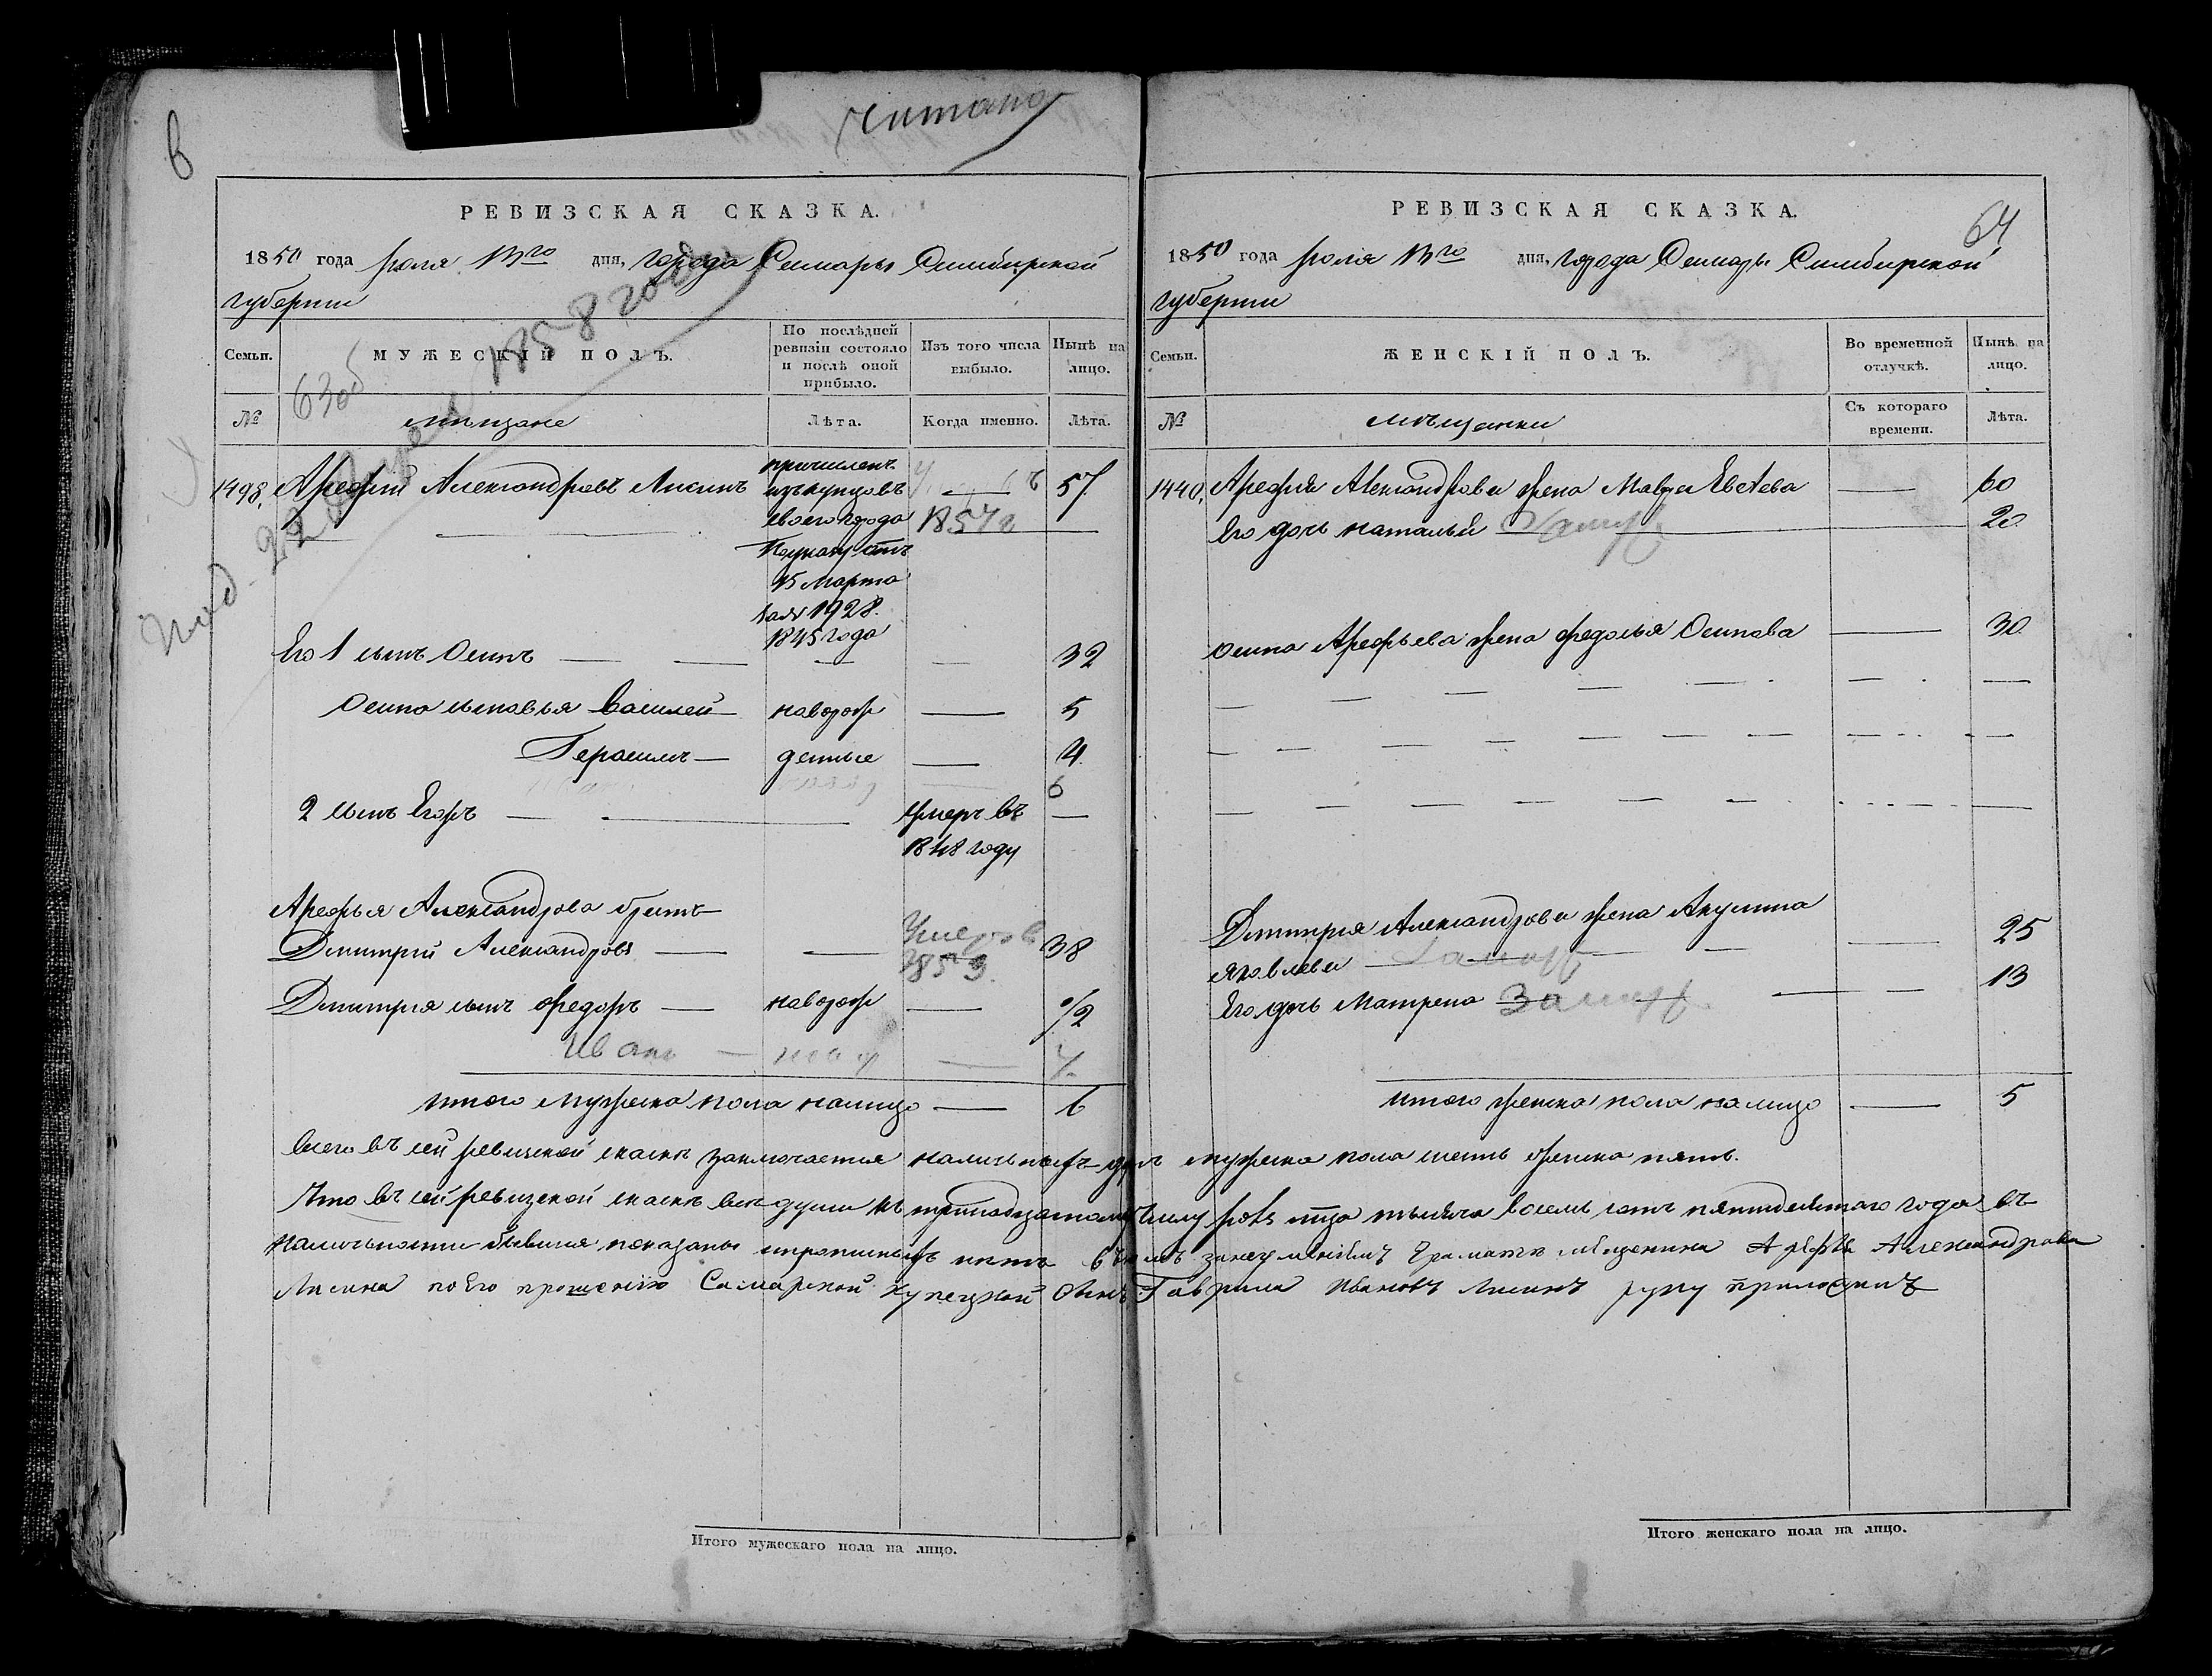 6
Читано
РЕВИЗСКАЯ СКАЗКА.
1850 года июля 13го дня, города Самары Симбирской
губернии
Под. 22 1858 года
6306
Семьи.
МУЖЕСКІЙ ПОЛЪ.
По послѣдней ревизіи состояло и послѣ оной прибыло.
Изъ того числа выбыло.
Нынѣ на лицо.
№
мещане
Лѣта.
Когда именно.
Лѣта.
1498. Арефий Александровъ Лисинъ
причисленъ
изъ купцовъ
своего города
по указу отъ
15 марта
за № 1928.
1845 года
1857 г
57.
Его 1 сынъ Осипъ — — — — 32
Осипа сыновья Василей — новорож — 5
Герасимъ — денные — 4.
6
2 сынъ Егоръ — — умеръ въ —
1848 году
Арефья Александрова братъ
Дмитрий Александровъ — — 38
Умеръ в
1859.
Дмитрия сынъ Федоръ — новорож — 1/2
Иванъ — новор — 7.
итого мужска пола налицо — 6
РЕВИЗСКАЯ СКАЗКА.
64
1850 года июля 13го дня, города Самары Симбирской
губернии
Семьи.
ЖЕНСКІЙ ПОЛЪ.
Во временной отлучкѣ.
Нынѣ на лицо.
№
мѣщанки
Съ котораго времени.
Лѣта.
1440. Арефия Александрова жена Мавра Евсеева — 60
Его дочь Наталья — 20.
Замуж
Осипа Арефьева жена Федосья Осипова — 30.
Дмитрия Александрова жена Акулина
Яковлева — — 25
Замуж
Его дочь Матрена — — 13
Замуж
итого женска пола налицо — 5
Всего въ сей ревизской сказке заключается наличныхъ душъ мужска пола шесть женска пять.
Что въ сей ревизской сказке все души къ тринадцатому числу июля тысяча восемь сотъ пятидесятаго года въ
наличности бывшия показаны и прописныхъ нетъ въ томъ занеумениемъ Грамате мещенина Арефья Александрова
Лисина по Его прошению Самарской Купецкой Сынъ Гаврила Ивановъ Лисинъ руку приложилъ
Итого мужескаго пола на лицо.
Итого женскаго пола на лицо.